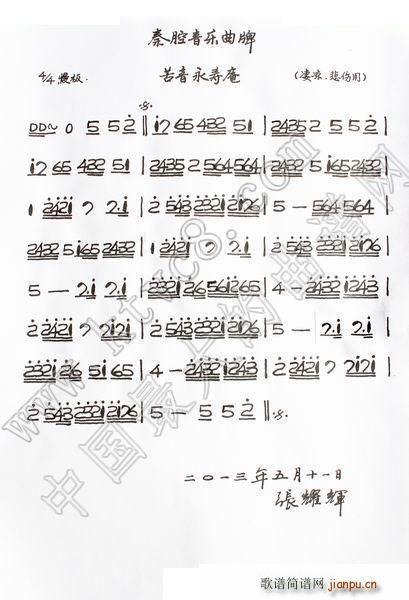 秦腔音乐曲牌
4/4 慢板. 苦音永寿庵 (凄凉.悲伤用)
DD~ 0 5 5 2 ‖ i2 65 432 51 | 2435 2 5 5 2 |
i2 65 432 51 | 2435 2 564564 | 2435 5 i65 2432 |
1 2421 7 2.i | 2 543 2321 2126 | 5 — 564564 |
2432 5 i65 2432 | 1 2421 7 2.i | 2 543 2321 2126 |
5 — 2.i 2.i | 2321 26 561265 | 4 — 2432 1243 |
2 2421 7 2121 | 2 543 2321 2126 | 5 — 2.i 2.i |
2321 26 5 i65 | 4 — 2432 1243 | 2 2421 7 2121 |
2 543 2321 2126 | 5 — 5 5 2 ‖
二〇一三年五月十一日
張耀輝
www.ktvc8.com
中国最大的曲谱网
歌谱简谱网
www.jianpu.cn